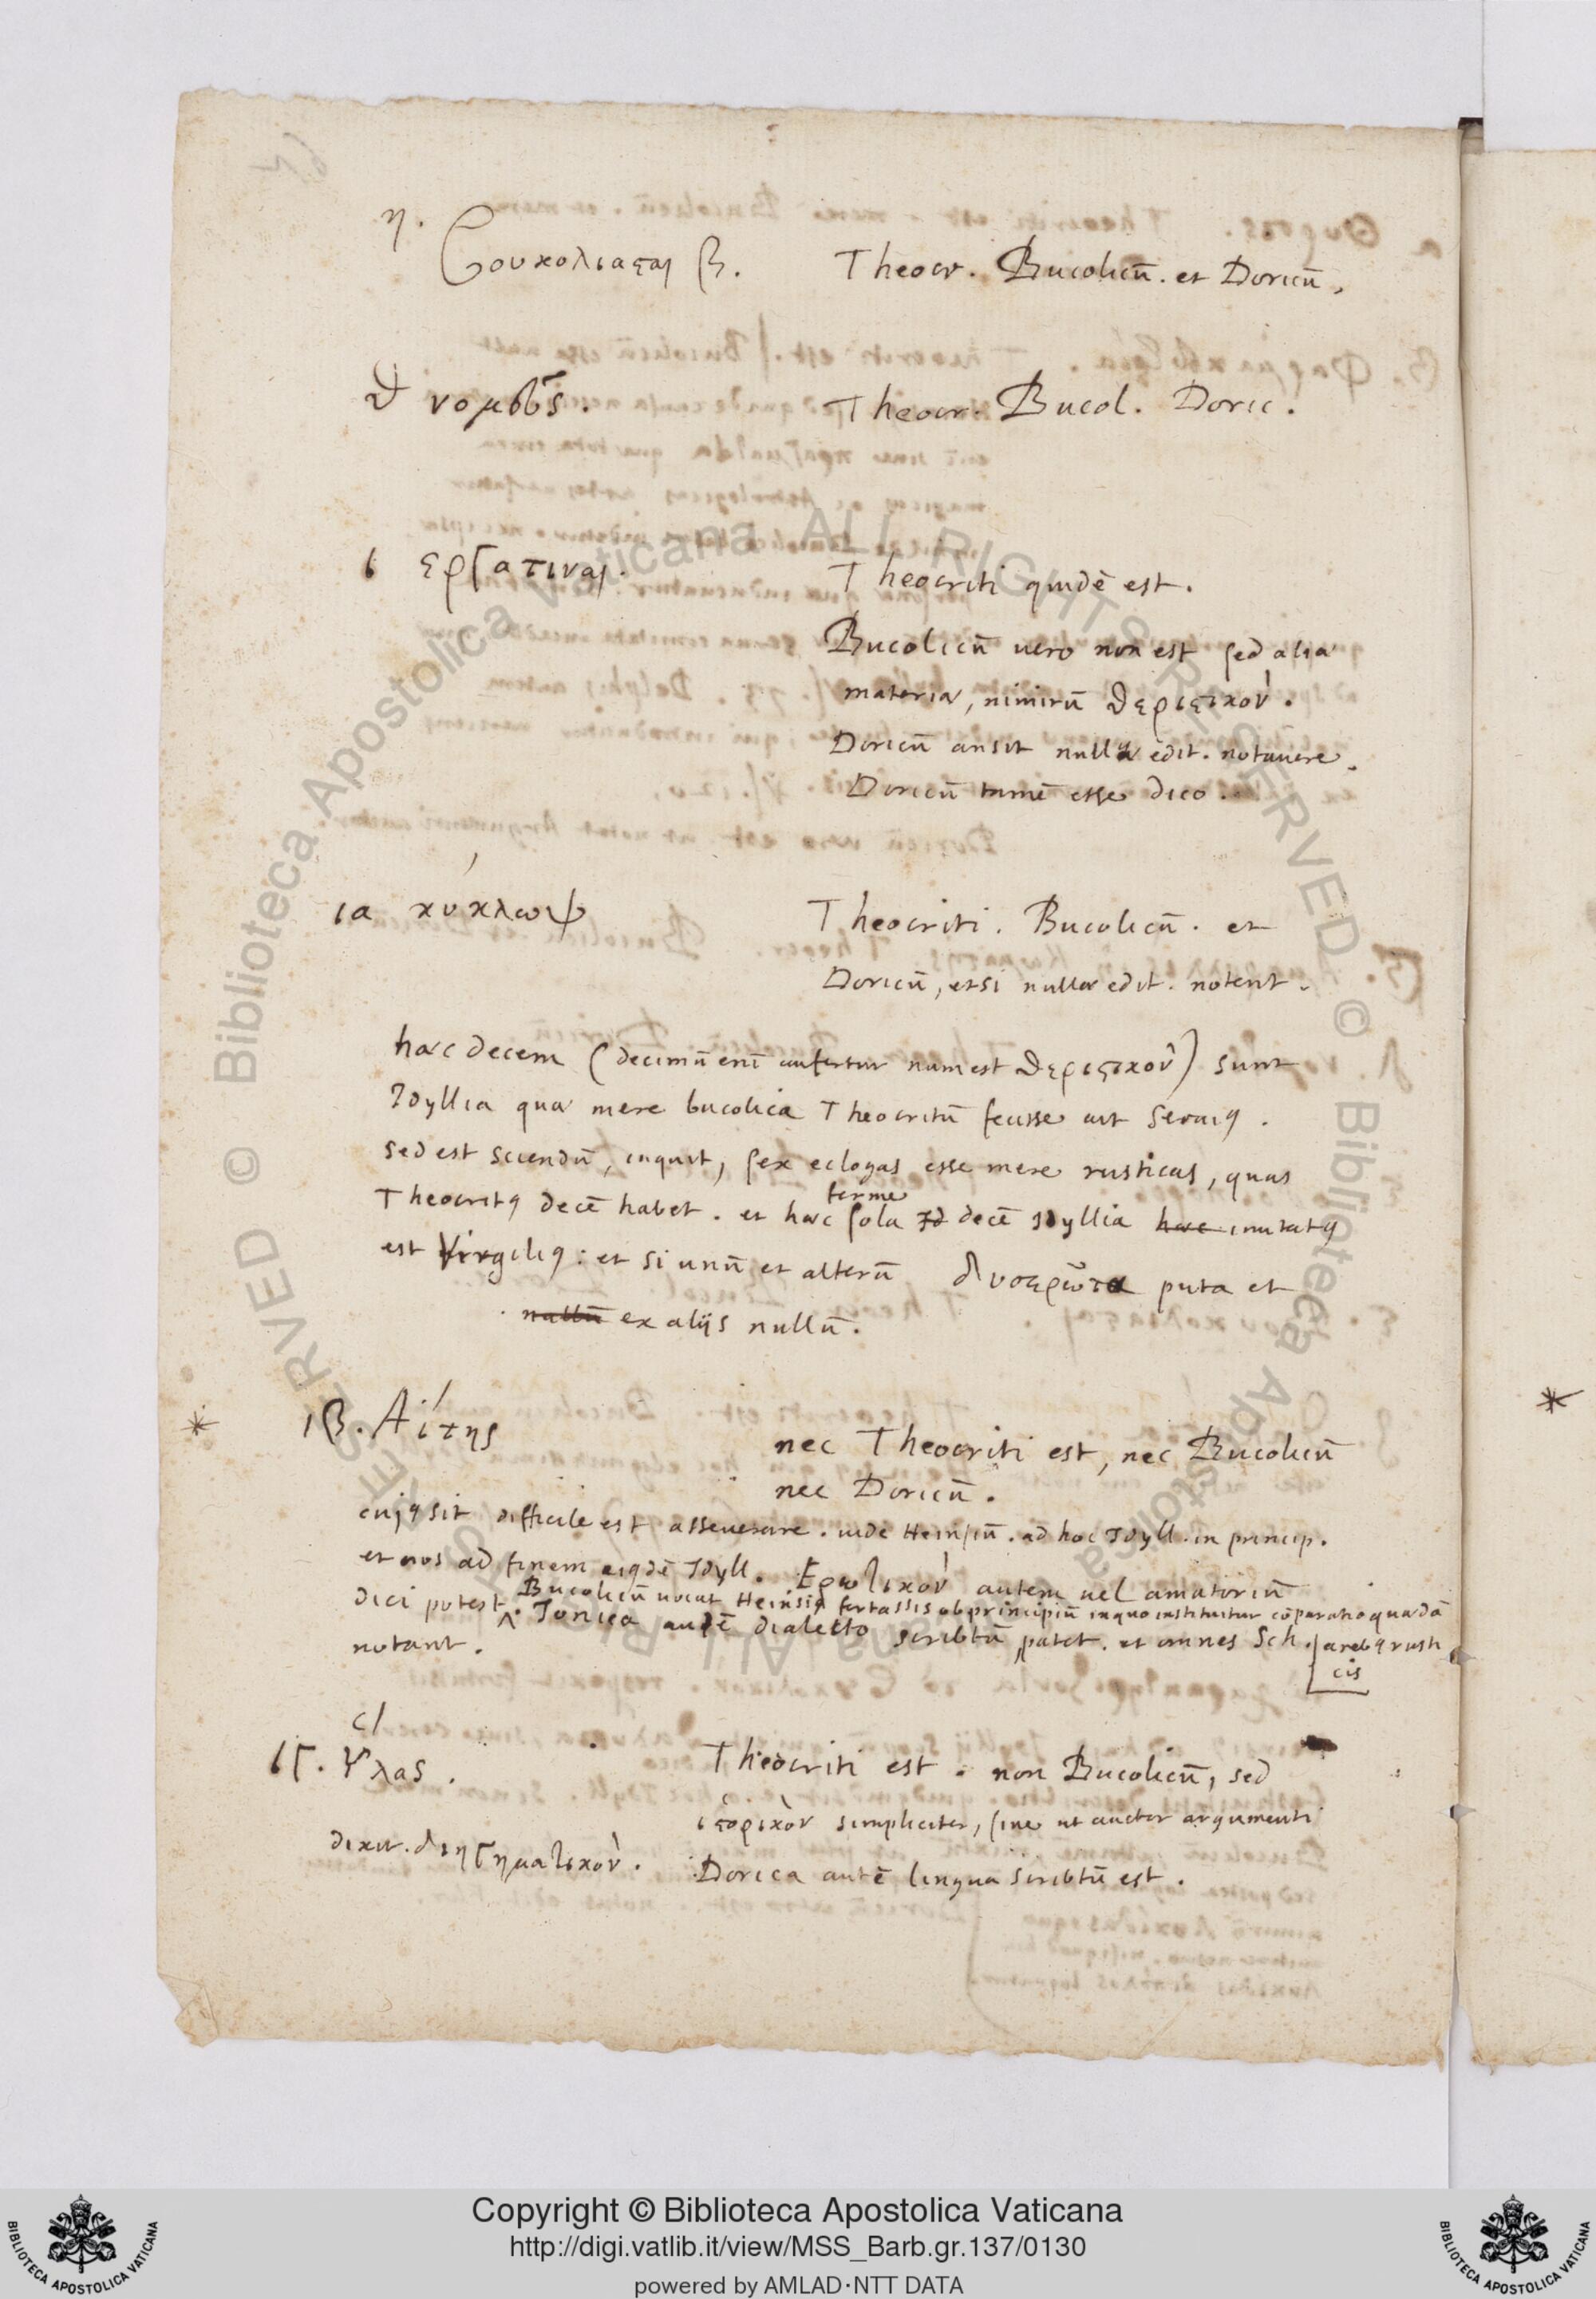 η.
βουκολιαϛαὶ β. Theocr. Bucolicū. et Doricū,
θ νομδς. Theocr. Bucol. Doric.
ι εργατιναι. Theocriti quidē est.
Bucolicū uero non est sed alia
materia, nimirū θεριϛικον.
Doricū an sit nulla edit. notauere.
Doricū tamē esse dico.
ια κύκλωψ Theocriti. Bucolicū. et
Doricū, etsi nullae edit. notent.
haec decem (decimū enī aufertur nam est θεριϛικον) sunt
Idyllia quae mere bucolica Theocritū fecisse ait Seruiꝯ.
sed est sciendū, inquit, sex eclogas esse mere rusticas, quas
Theocritꝯ decē habet. et haec ferme sola decē Idyllia haec imitatꝯ
est Virgiliꝯ: et si unū et alterū δυσερῶτα puta et
nullū ex alijs nullū.
* ιβ. Αΐτης nec Theocriti est, nec Bucolicū *
nec Doricū.
cujꝯ sit difficile est asseuerare. uide Heinsiū. ad hoc Idyll. in princip.
et nos ad finem eiꝯdē Idyll. Ερωτικον autem uel amatoriū
Bucolicū uocat Heinsiꝯ fortassis ob principiū in quo instituitur cōparatio quadā
dici potest ^. Ionica autē dialecto scribtū patet. et omnes Sch. a rebꝯ rusti
notant. cis
ιγ. Υλας. Theocriti est. non Bucolicū, sed
ιϛορικὸν simpliciter, siue ut auctor argumenti
dixit. διηγηματικον. Dorica autē lingua scribtū est.
Copyright © Biblioteca Apostolica Vaticana
http://digi.vatlib.it/view/MSS_Barb.gr.137/0130
powered by AMLAD·NTT DATA